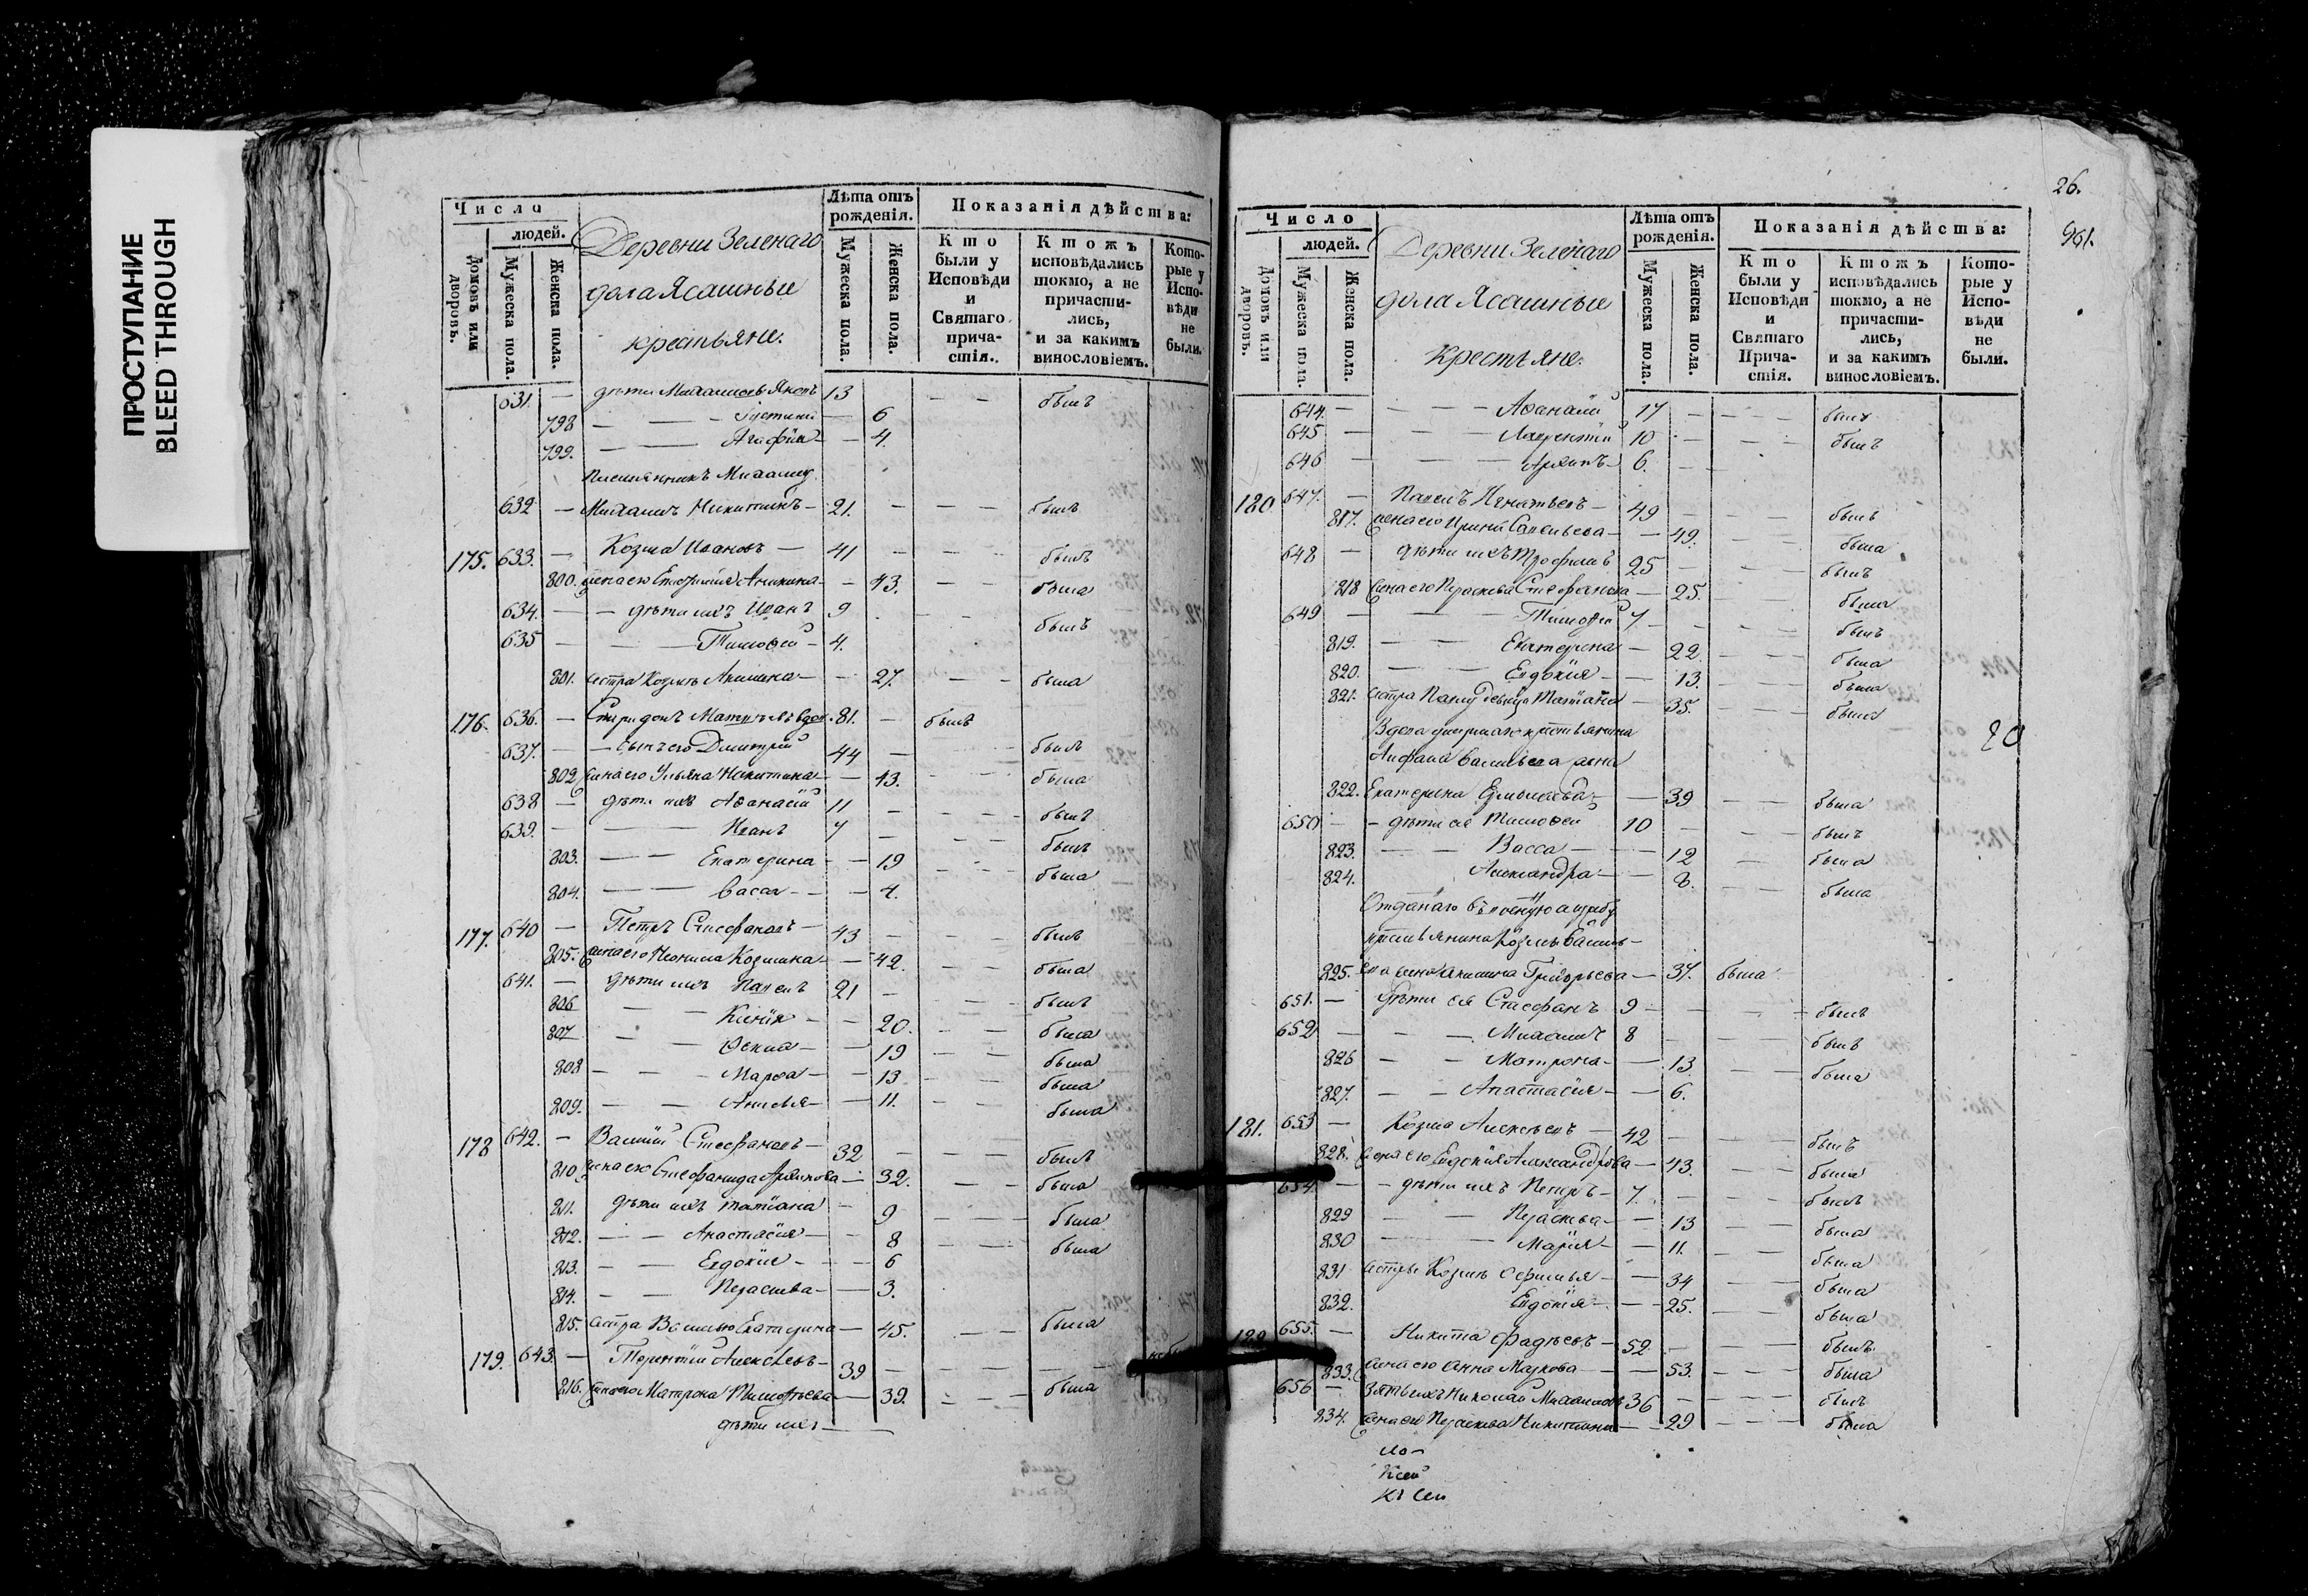 ПРОСТУПАНИЕ
BLEED THROUGH
Число
людей.
Домовъ или дворовъ.
Мужеска пола.
Женска пола.
Деревни Зеленаго
дола Ясашные
крестьяне.
Лѣта отъ рожденія.
Мужеска пола.
Женска пола.
Показанія дѣйства:
Кто были у Исповѣди и Святаго прича-стія.
Ктожъ исповѣдались токмо, а не причасти-лись, и за какимъ винословіемъ.
Кото-рые у Испо-вѣди не были.
631. — дѣти Михаиловъ Яковъ 13 — — былъ
798 — — — 6
799. — — Агафiя — — 4.
Племянникъ Михаилу
632 — Михаилъ Никитинъ — 21. — — — былъ
175. 633. — Козма Ивановъ — 41 — — — былъ
800. жена его Евфимiя Аникина — — 43. — — была
634. — — дѣти ихъ Иванъ 9 — — былъ
635 — — — Тимоѳей — 4.
801. сестра Козмѣ Акилина — — 27. — — была
176. 636. — Спиридонъ Матвѣевъ вдов. 81. — былъ
637. — — сынъ его Димитрiй 44 — — былъ
802 жена его Ульяна Никитина — — 43. — — была
638 — дѣти ихъ Аѳанасiй 11 — — — былъ
639. — — — Иванъ 7 — — — былъ
803. — — Екатерина — — 19 — — была
804. — — Васса — — — 4.
177. 640 — Петръ Стефановъ — 43 — — — былъ
805. жена его Неонила Козмина — — 42. — — была
641. — дѣти ихъ Павелъ 21 — — — былъ
806 — — Ксенiя — — 20. — — была
807 — — Ѳекла — — 19 — — была
808 — — — Марѳа — — 13 — — была
809. — — Анисья — — 11. — — была
178 642. — Василiй Стефановъ — 32 — — — былъ
810. жена его Стефанида Архипова — 32. — — была
811. дѣти ихъ Татiана — 9 — — — была
812. — — Анастасiя — — 8 — — — была
813. — — Евдокiя — — — 6
814. — — Параскева — — 3.
815. сестра Василью Екатерина — 45. — — была
179. 643. — Терентiй Алексѣевъ — 39 — — — — —
816. жена его Матрона Тимоѳеева — 39. — — — была
дѣти ихъ —
26.
961.
Число
людей.
Домовъ или дворовъ.
Мужеска пола.
Женска пола.
Деревни Зеленаго
дола Ясашные
Крестьяне.
Лѣта отъ рожденія.
Мужеска пола.
Женска пола.
Показанія дѣйства:
Кто были у Исповѣди и Святаго Прича-стія.
Ктожъ исповѣдались токмо, а не причасти-лись, и за какимъ винословіемъ.
Кото-рые у Испо-вѣди не были.
644. — — — — Аѳанасiй 17 — — — былъ
645 — — — Лаврентiй 10 — — — былъ
646 — — — Архипъ — 6. —
180 647. — Павелъ Игнатьевъ — 49 — — былъ
817. жена его Ирина Савельева — — 49. — — была
648 — дѣти ихъ Трофимъ 25 — — — былъ
818 жена его Параскева Стефанова — 25. — — была
649 — — Тимоѳей 7 — — — былъ
819. — — Екатерина — 22. — — была
820. — — Евдокiя — — 13. — — была
821. сестра Павлу девица Татiана — 35. — — была
Вдова умершаго крестьянина
20
Васильева жена
822. Екатерина Ермолаева — — 39 — — была
650 — — дѣти ея Тимоѳей 10 — — — былъ
823. — — Васса — — 12 — была
824. Александра — — 8. — — была
Отданаго въ
крестьянина Козмы Василь-
825. ева жена Акилина Григорьева — 37. была
651. — дѣти ея Стефанъ 9 — — — — былъ
652 — — — Михаилъ 8 — — — былъ
826 — — Матрона — — 13. — — была
827. — — Анастасiя — — 6.
181. 653 — Козма Алексѣевъ — 42 — — — былъ
828. жена его Евдокiя Александрова — 43. — — была
654. — — дѣти ихъ Петръ — 7. — — — былъ
829 — — Параскева — — 13 — — была
830 — — Марiя — — 11. — — была
831 сестры Козмѣ Ефимья — — 34 — — была
832. Евдокiя — — — 25. — — была
182 655. — Никита Фадѣевъ — 52 — — — былъ
833. жена его Анна Маркова — — 53. — — была
656 — Зять ихъ Николай Михаиловъ 36 — — — былъ
834. жена его Параскева Никитина — — 29 — — — была